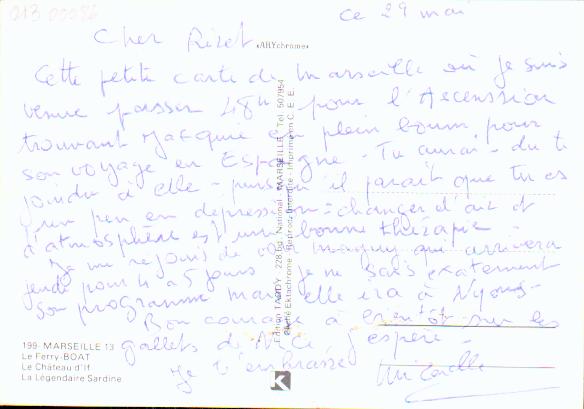 013 00086
ce 29 mai
Cher Rizet
«ARYchrome»
Cette petite carte de Marseille où je suis
venue passer 48h pour l'Ascension
trouvant Jacquie en plein boum pour
son voyage en Espagne - Tu aurais du te
joindre à elle - puisqu'il parait que tu es
un peu en depression = changer d'air et
d'atmosphère est une bonne thérapie -
Je me rejouis de voir maguy qui arrivera
jeudi pour 4 a 5 jours - je ne sais exatement
son programme mais elle ira à Nyons -
Bon courage à bientôt sur les
gallets de Nice j'espère -
Je t'embrasse
Mireille
Edition TARDY - 228, Bd. National - MARSEILLE - Tél. 507954
Cliché Ektachrome - Reprod. Interdite - Imprimé en C. E. E.
199 - MARSEILLE 13
Le Ferry-BOAT
Le Château d'If
La Légendaire Sardine
K